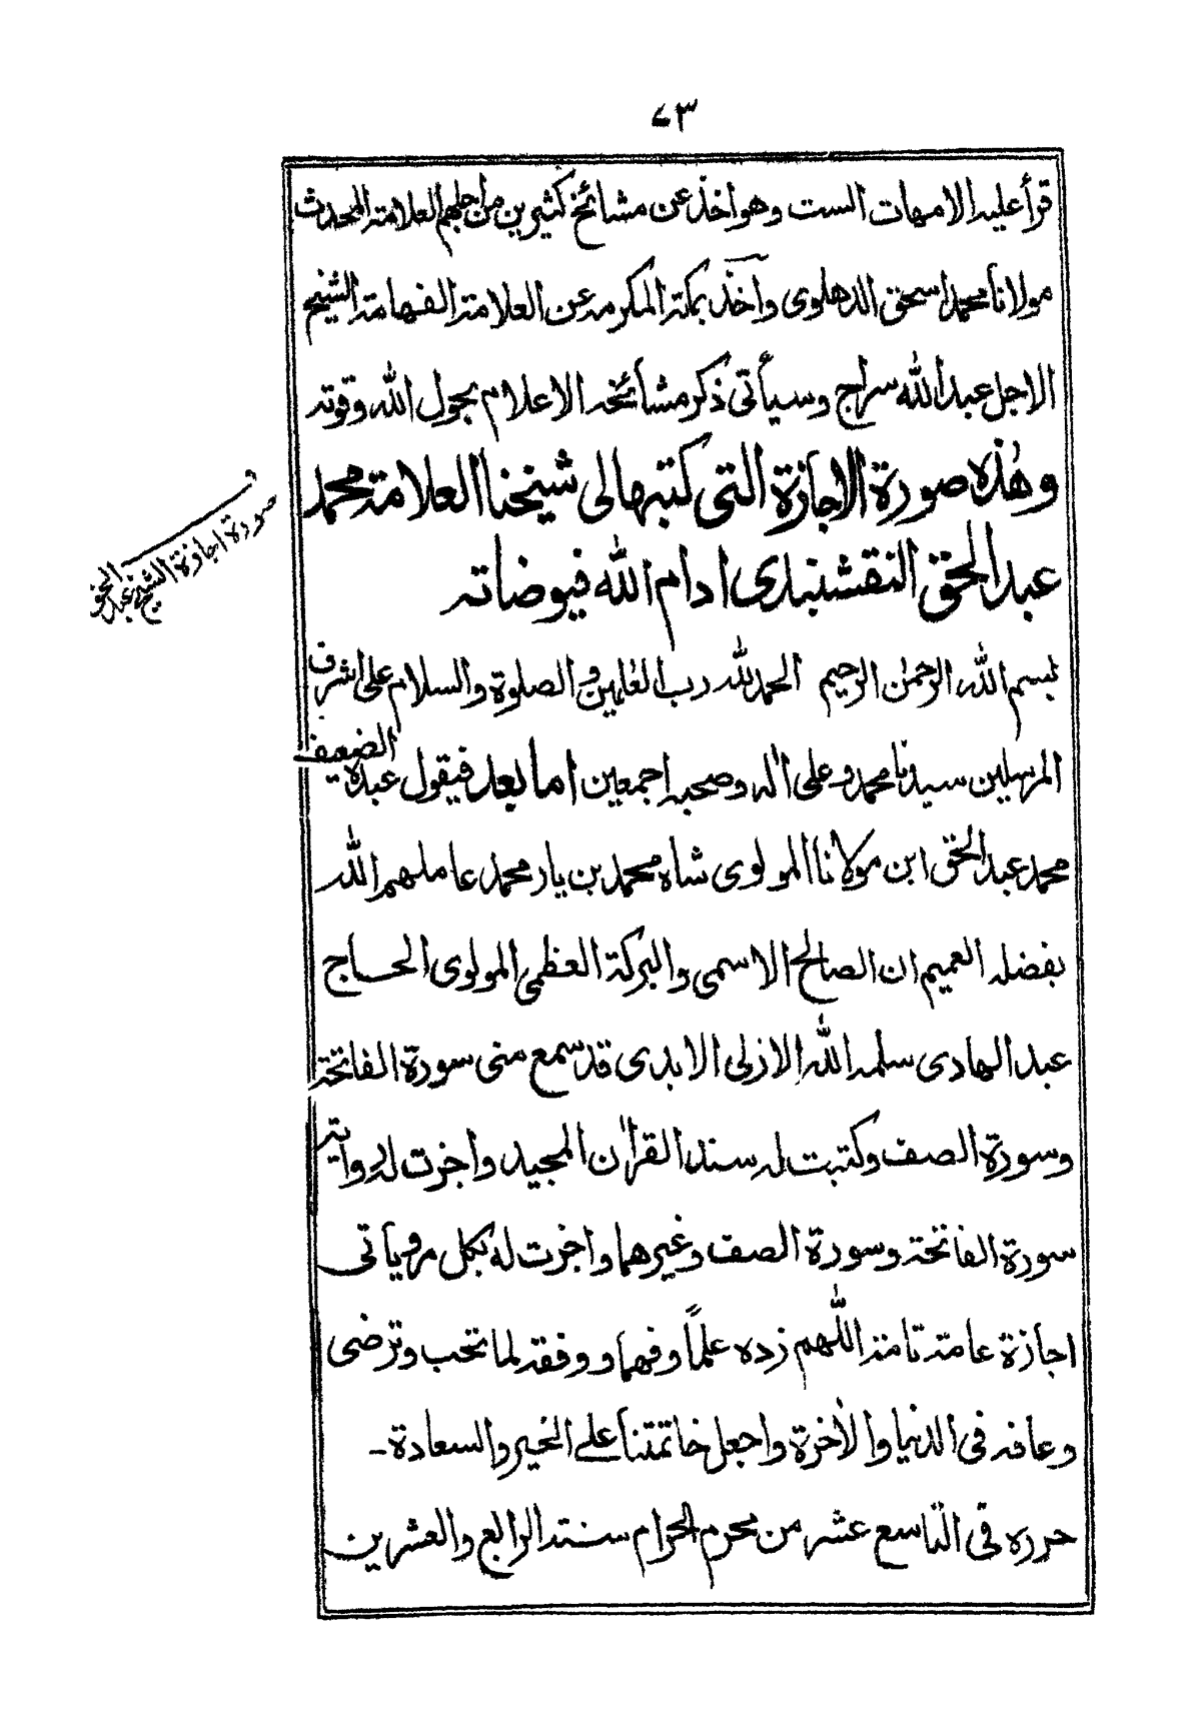 ٧٣
قرأ عليه الامهات الست وهو اخذ عن مشائخ كثيرين من اجلهم العلامة المحدث
مولانا محمد اسحق الدهلوى وأخذ بمكة المكرمة عن العلامة الفهامة الشيخ
الاجل عبد الله سراج وسيأتى ذكر مشائخه الاعلام بحول الله وقوته
وهذه صورة الاجازة التى كتبها لى شيخنا العلامة محمد
عبد الحق النقشبندى ادام الله فيوضاته
صورة اجازة الشيخ عبد الحق
بسم الله الرحمٰن الرحيم الحمد لله رب العٰلمين والصلوة والسلام على اشرف
المرسلين سيدنا محمد وعلى اٰله وصحبه اجمعين اما بعد فيقول عبده الضعيف
محمد عبد الحق ابن مولانا المولوى شاه محمد بن يار محمد عاملهم الله
بفضله العميم ان الصالح الاسمى والبركة العظمى المولوى الحاج
عبد الهادى سلمه الله الازلى الابدى قد سمع منى سورة الفاتحة
وسورة الصف وكتبت له سند القراٰن المجيد واجزت له رواية
سورة الفاتحة وسورة الصف وغيرهما واجزت له بكل مروياتى
اجازة عامة تامة اللّٰهم زده علمًا وفهما ووفقه لما تحب وترضى
وعافه فى الدنيا والاٰخرة واجعل خاتمتنا على الخير والسعادة-
حرره فى التاسع عشر من محرم الحرام سنة الرابع والعشرين